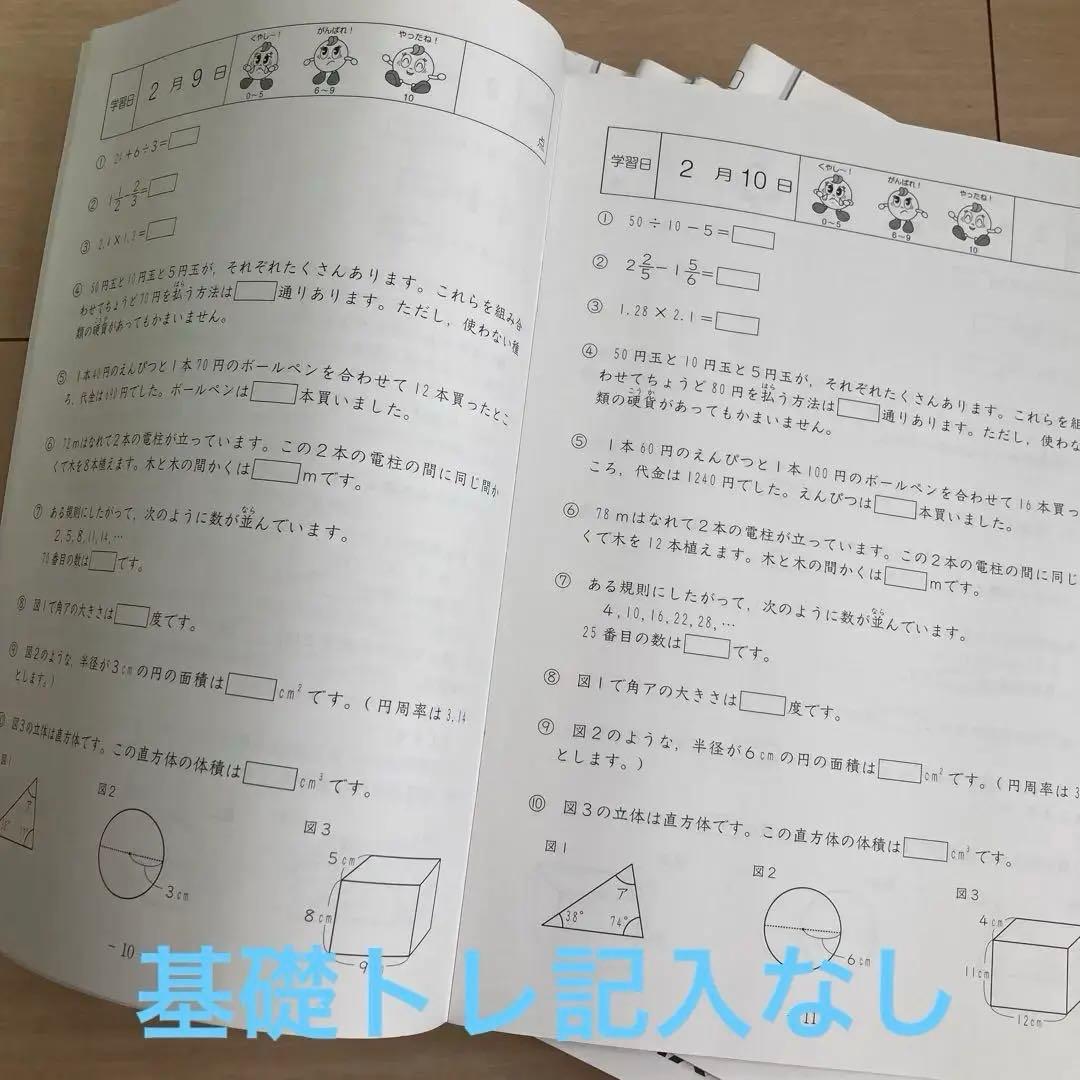 学習日
2月9日
くやしー!
がんばれ!
やったね!
0〜5
6〜9
10
点
① 24+6÷3=
② 1 1/2 2/3=
③ 2.4×1.3=
④ 50円玉と10円玉と5円玉が,それぞれたくさんあります。これらを組み合
わせてちょうど70円を払う方法は 通りあります。ただし,使わない種
類の硬貨があってもかまいません。
⑤ 1本40円のえんぴつと1本70円のボールペンを合わせて12本買ったとこ
ろ,代金は690円でした。ボールペンは 本買いました。
⑥ 72mはなれて2本の電柱が立っています。この2本の電柱の間に同じ間か
くで木を8本植えます。木と木の間かくは mです。
⑦ ある規則にしたがって,次のように数が並んでいます。
2,5,8,11,14,…
70番目の数は です。
⑧ 図1で角アの大きさは 度です。
⑨ 図2のような,半径が3cmの円の面積は cm²です。(円周率は3.14
とします。)
図3の立体は直方体です。この直方体の体積は cm³です。
図1
ア
図2
3cm
図3
5cm
8cm
9c
- 10
学習日
2月10日
くやしー!
がんばれ!
やったね!
0〜5
6〜9
10
① 50÷10-5=
② 2 2/5-1 5/6=
③ 1.28×2.1=
④ 50円玉と10円玉と5円玉が,それぞれたくさんあります。これらを組
わせてちょうど80円を払う方法は 通りあります。ただし,使わな
類の硬貨があってもかまいません。
⑤ 1本60円のえんぴつと1本100円のボールペンを合わせて16本買っ
ころ,代金は1240円でした。えんぴつは 本買いました。
⑥ 78mはなれて2本の電柱が立っています。この2本の電柱の間に同じ
くで木を12本植えます。木と木の間かくは mです。
⑦ ある規則にしたがって,次のように数が並んでいます。
4,10,16,22,28,…
25番目の数は です。
⑧ 図1で角アの大きさは 度です。
⑨ 図2のような,半径が6cmの円の面積は cm²です。(円周率は3
とします。)
⑩ 図3の立体は直方体です。この直方体の体積は cm³です。
図1
ア
38°
74°
図2
6cm
図3
4cm
11cm
12cm
11
基礎トレ記入なし